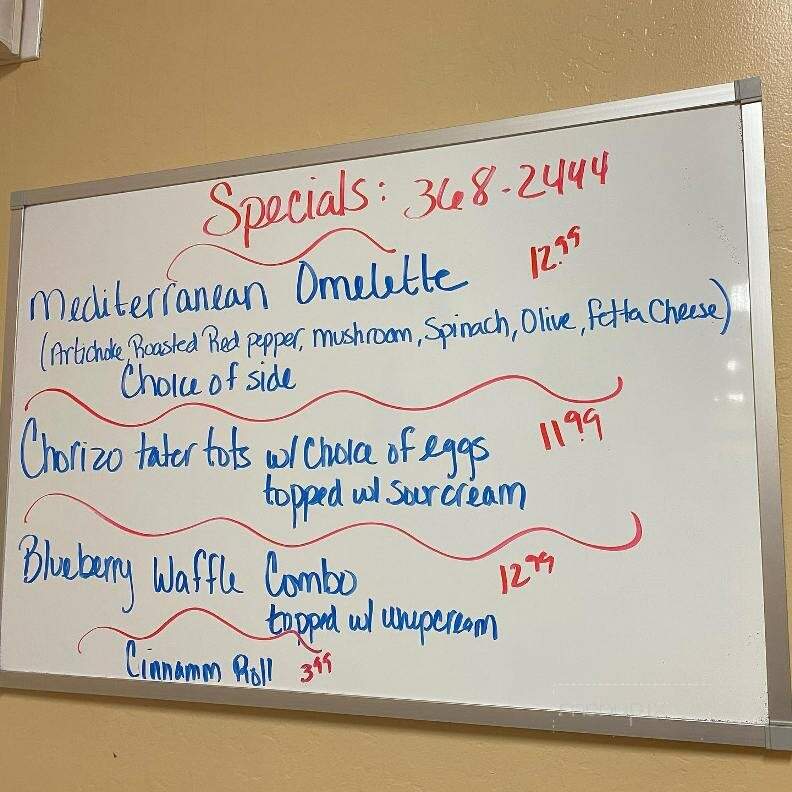 Specials: 368-2444
Mediterranean Omelette 12.99
(Artichoke, Roasted Red pepper, mushroom, Spinach, Olive, fetta Cheese)
Choice of side
Chorizo tater tots w/ Choice of eggs 11.99
topped w/ sour cream
Blueberry Waffle Combo 12.99
topped w/ whipcream
Cinnamm Roll 3.99